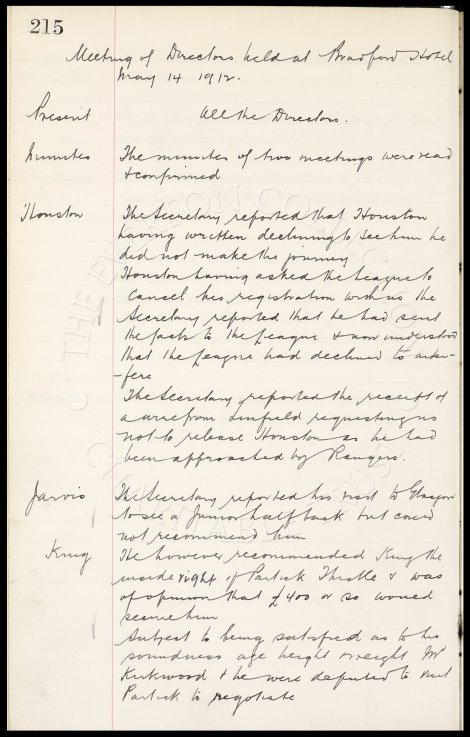 215
Meeting of Directors held at Bradford Hotel
May 14 1912.
Present All the Directors.
Minutes The minutes of two meetings were read
& confirmed
Houston The Secretary reported that Houston
having written declining to see him he
did not make the journey
Houston having asked the League to
Cancel his registration with us the
Secretary reported that he had sent
the facts to the League & now understood
that the League had declined to inter-
-fere
The Secretary reported the receipt of
a wire from Linfield requesting us
not to release Houston as he had
been approached by Rangers.
Jarvis The Secretary reported his visit to Glasgow
to see a Junior half back but could
not recommend him
King He however recommended King the
inside right of Partick Thistle & was
of opinion that £400 or so would
secure him
Subject to being satisfied as to his
soundness age height & weight Mr
Kirkwood & he were deputed to visit
Partick to negotiate